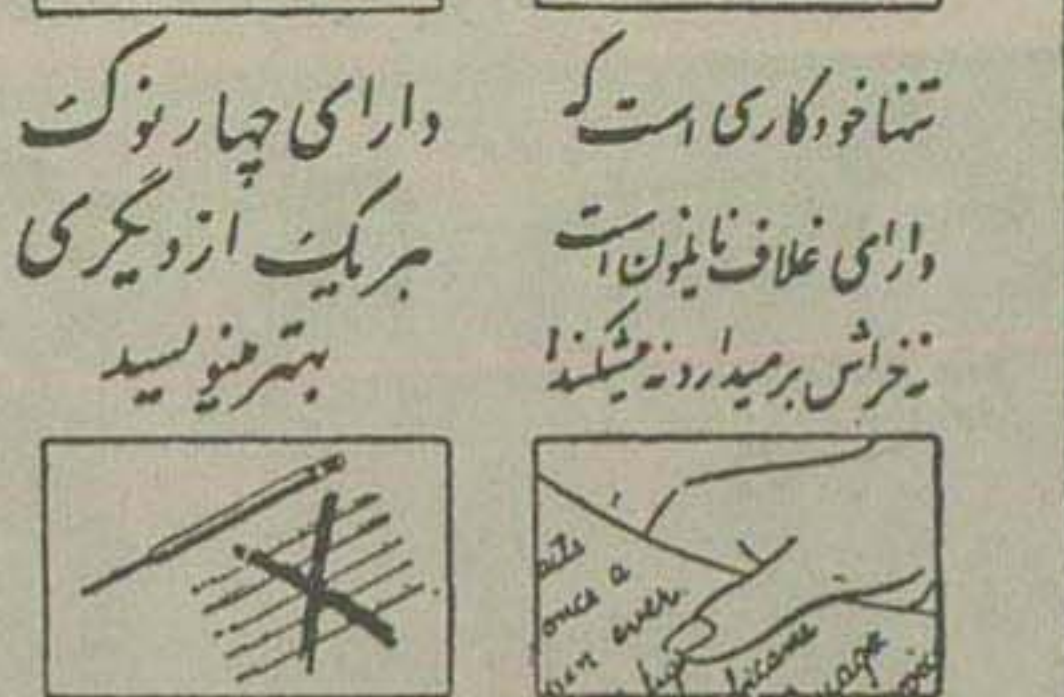 تنها خودکاری است که
دارای غلاف نایلون است
نه خراش برمیدارد نه میشکند!
دارای چهار نوک
هر یک از دیگری
بهتر مینویسد
once a
ever